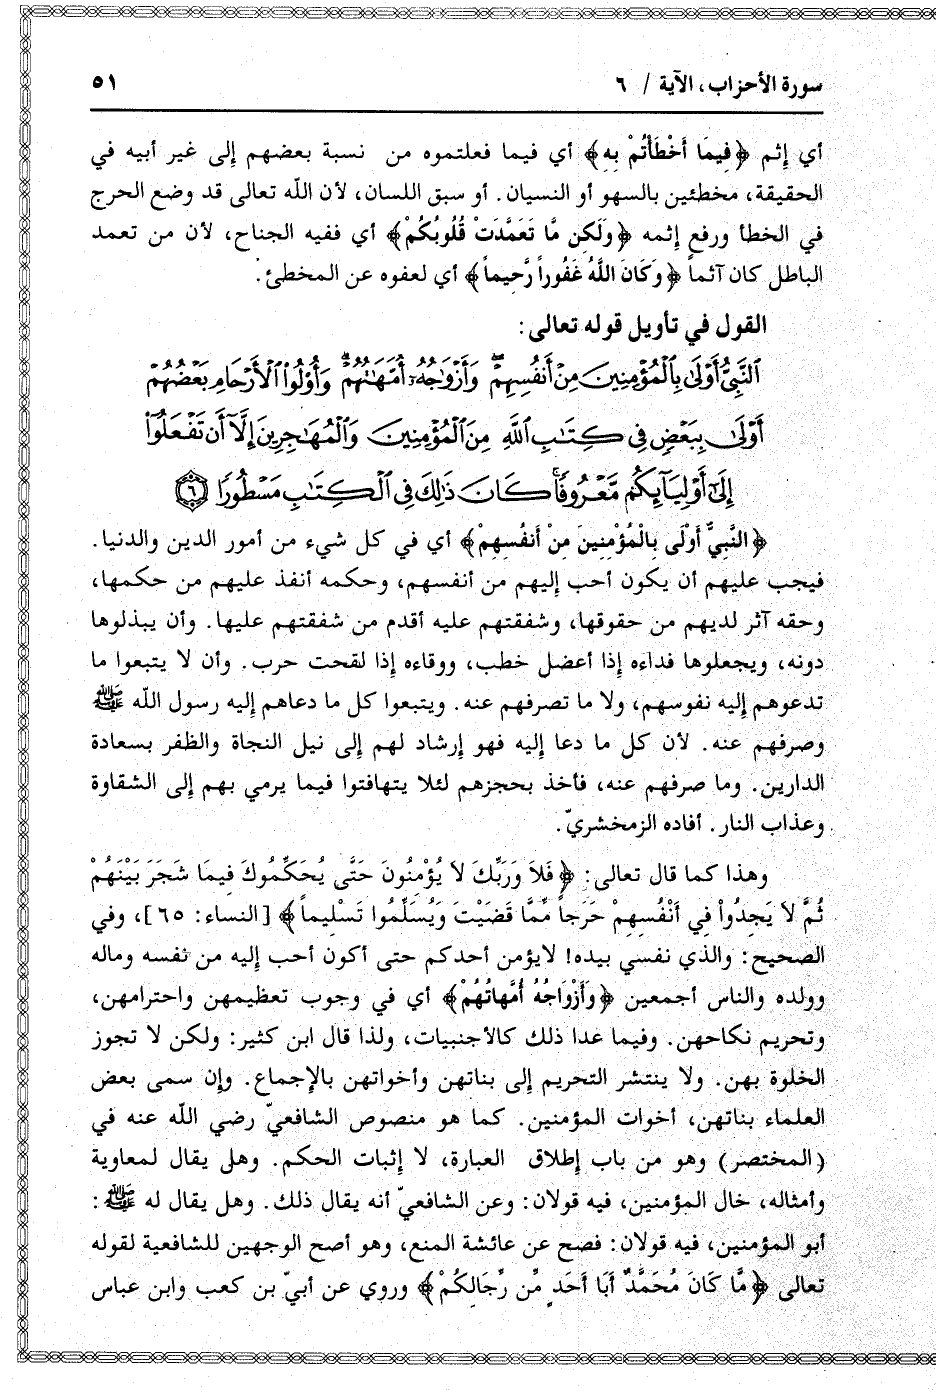 سورة الأحزاب، الآية / ٦
٥١
أي إثم ﴿فِيمَا أَخْطَأْتُمْ بِهِ﴾ أي فيما فعلتموه من نسبة بعضهم إلى غير أبيه في
الحقيقة، مخطئين بالسهو أو النسيان. أو سبق اللسان، لأن الله تعالى قد وضع الحرج
في الخطأ ورفع إثمه ﴿وَلَكِن مَّا تَعَمَّدَتْ قُلُوبُكُمْ﴾ أي ففيه الجناح، لأن من تعمد
الباطل كان آثماً ﴿وَكَانَ اللَّهُ غَفُوراً رَّحِيماً﴾ أي لعفوه عن المخطئ.
القول في تأويل قوله تعالى:
ٱلنَّبِيُّ أَوْلَىٰ بِٱلْمُؤْمِنِينَ مِنْ أَنفُسِهِمْ ۖ وَأَزْوَٰجُهُۥٓ أُمَّهَٰتُهُمْ ۗ وَأُوْلُوا۟ ٱلْأَرْحَامِ بَعْضُهُمْ
أَوْلَىٰ بِبَعْضٍ فِى كِتَٰبِ ٱللَّهِ مِنَ ٱلْمُؤْمِنِينَ وَٱلْمُهَٰجِرِينَ إِلَّآ أَن تَفْعَلُوٓا۟
إِلَىٰٓ أَوْلِيَآئِكُم مَّعْرُوفًا ۚ كَانَ ذَٰلِكَ فِى ٱلْكِتَٰبِ مَسْطُورًا ۝٦
﴿النَّبِيُّ أَوْلَى بِالْمُؤْمِنِينَ مِنْ أَنفُسِهِمْ﴾ أي في كل شيء من أمور الدين والدنيا.
فيجب عليهم أن يكون أحب إليهم من أنفسهم، وحكمه أنفذ عليهم من حكمها،
وحقه آثر لديهم من حقوقها، وشفقتهم عليه أقدم من شفقتهم عليها. وأن يبذلوها
دونه، ويجعلوها فداءه إذا أعضل خطب، ووقاءه إذا لقحت حرب. وأن لا يتبعوا ما
تدعوهم إليه نفوسهم، ولا ما تصرفهم عنه. ويتبعوا كل ما دعاهم إليه رسول الله ﷺ
وصرفهم عنه. لأن كل ما دعا إليه فهو إرشاد لهم إلى نيل النجاة والظفر بسعادة
الدارين. وما صرفهم عنه، فأخذ بحجزهم لئلا يتهافتوا فيما يرمي بهم إلى الشقاوة
وعذاب النار. أفاده الزمخشريّ.
وهذا كما قال تعالى: ﴿فَلَا وَرَبِّكَ لَا يُؤْمِنُونَ حَتَّى يُحَكِّمُوكَ فِيمَا شَجَرَ بَيْنَهُمْ
ثُمَّ لَا يَجِدُواْ فِي أَنْفُسِهِمْ حَرَجاً مِّمَّا قَضَيْتَ وَيُسَلِّمُوا تَسْلِيماً﴾ [النساء: ٦٥]، وفي
الصحيح: والذي نفسي بيده! لايؤمن أحدكم حتى أكون أحب إليه من نفسه وماله
وولده والناس أجمعين ﴿وَأَزْوَاجُهُ أُمَّهَاتُهُمْ﴾ أي في وجوب تعظيمهن واحترامهن،
وتحريم نكاحهن. وفيما عدا ذلك كالأجنبيات، ولذا قال ابن كثير: ولكن لا تجوز
الخلوة بهن. ولا ينتشر التحريم إلى بناتهن وأخواتهن بالإجماع. وإن سمى بعض
العلماء بناتهن، أخوات المؤمنين. كما هو منصوص الشافعيّ رضي الله عنه في
(المختصر) وهو من باب إطلاق العبارة، لا إثبات الحكم. وهل يقال لمعاوية
وأمثاله، خال المؤمنين، فيه قولان: وعن الشافعيّ أنه يقال ذلك. وهل يقال له ﷺ:
أبو المؤمنين، فيه قولان: فصح عن عائشة المنع، وهو أصح الوجهين للشافعية لقوله
تعالى ﴿مَّا كَانَ مُحَمَّدٌ أَبَا أَحَدٍ مِّن رِّجَالِكُمْ﴾ وروي عن أبيّ بن كعب وابن عباس